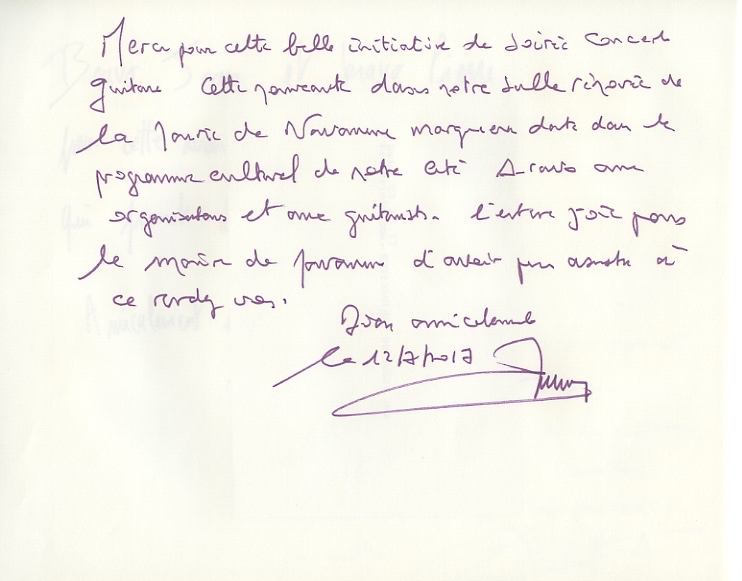 Merci pour cette belle initiative de soirée concert
guitare Cette nouveauté dans notre salle rénovée de
la Mairie de marquera date dans le
programme culturel de notre cité A-ravo aux
organisateurs et aux guitaristes. C'est une joie pour
le maire de d'avoir pu assister à
ce rendez vous.
Bien amicalement
le 12/7/2017